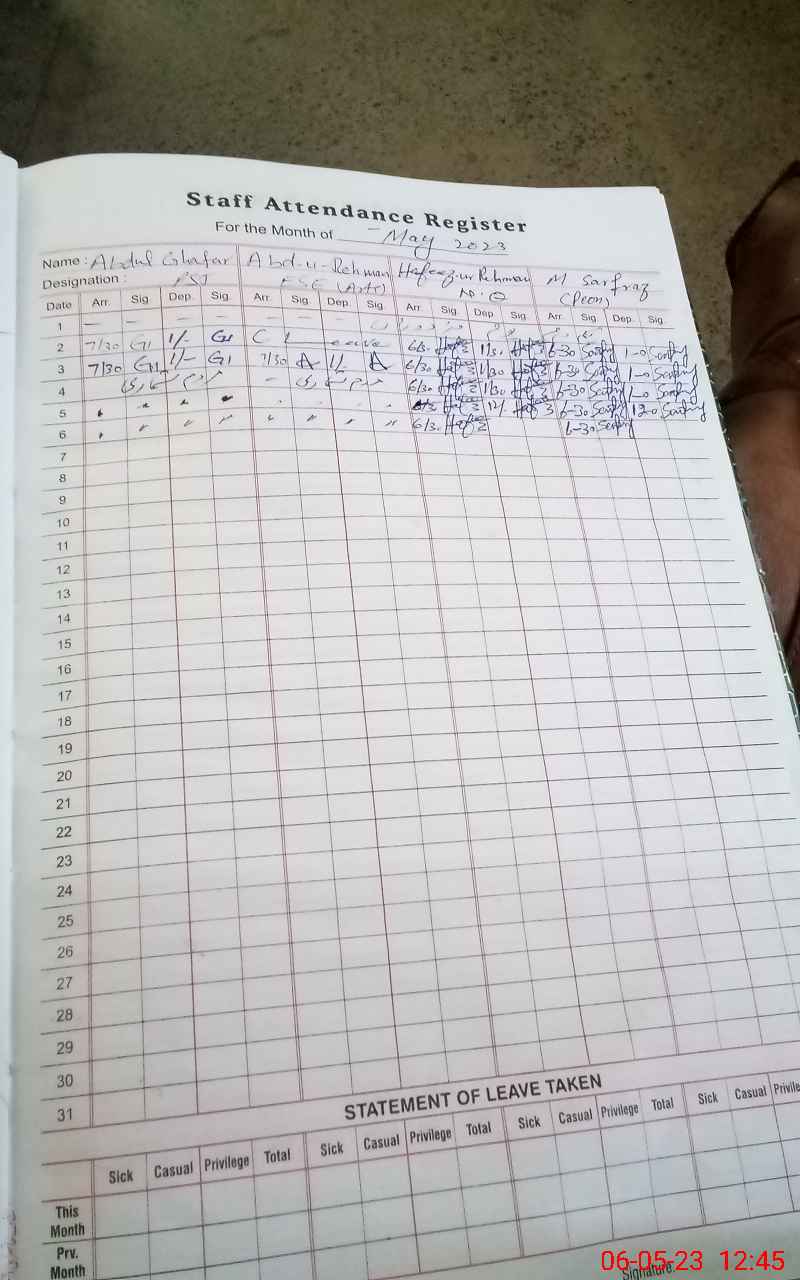 Staff Attendance Register
For the Month of May 2023
Name : Abdul Ghafar Abd-u-Rehman Hafeez-ur-Rehman M Sarfraz
Designation : PST ESE (Arts) N.Q (Peon)
Date Arr. Sig. Dep. Sig. Arr. Sig. Dep. Sig. Arr. Sig. Dep. Sig. Arr. Sig. Dep. Sig.
1 — — — —
2 7/30 1/- C Leave 6/30 1/30 6-30 1-0
3 7/30 1/- 7/30 A 1/- A 6/30 1/30 6-30 1-0
4 مردم شماری مردم شماری 6/30 1/30 6-30 1-0
5 " " " " 12/- 6-30 12-0
6 " " " " " " " " 6/30 6-30
7
8
9
10
11
12
13
14
15
16
17
18
19
20
21
22
23
24
25
26
27
28
29
30
31
STATEMENT OF LEAVE TAKEN
Sick Casual Privilege Total Sick Casual Privilege Total Sick Casual Privilege Total Sick Casual
This Month
Prv. Month
Signature
06-05-23 12:45